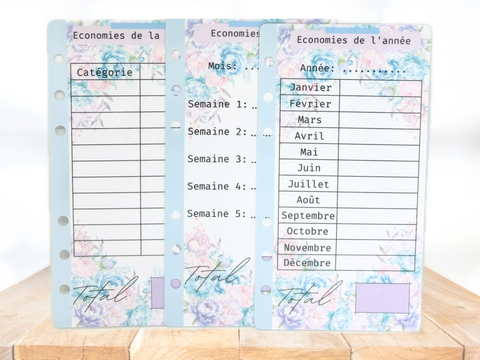 Economies de la
Catégorie
Total
Economies
Mois: ...
Semaine 1: ..
Semaine 2: ..
Semaine 3: ..
Semaine 4: ..
Semaine 5: ..
Total
Economies de l'année
Année: ...........
Janvier
Février
Mars
Avril
Mai
Juin
Juillet
Août
Septembre
Octobre
Novembre
Décembre
Total